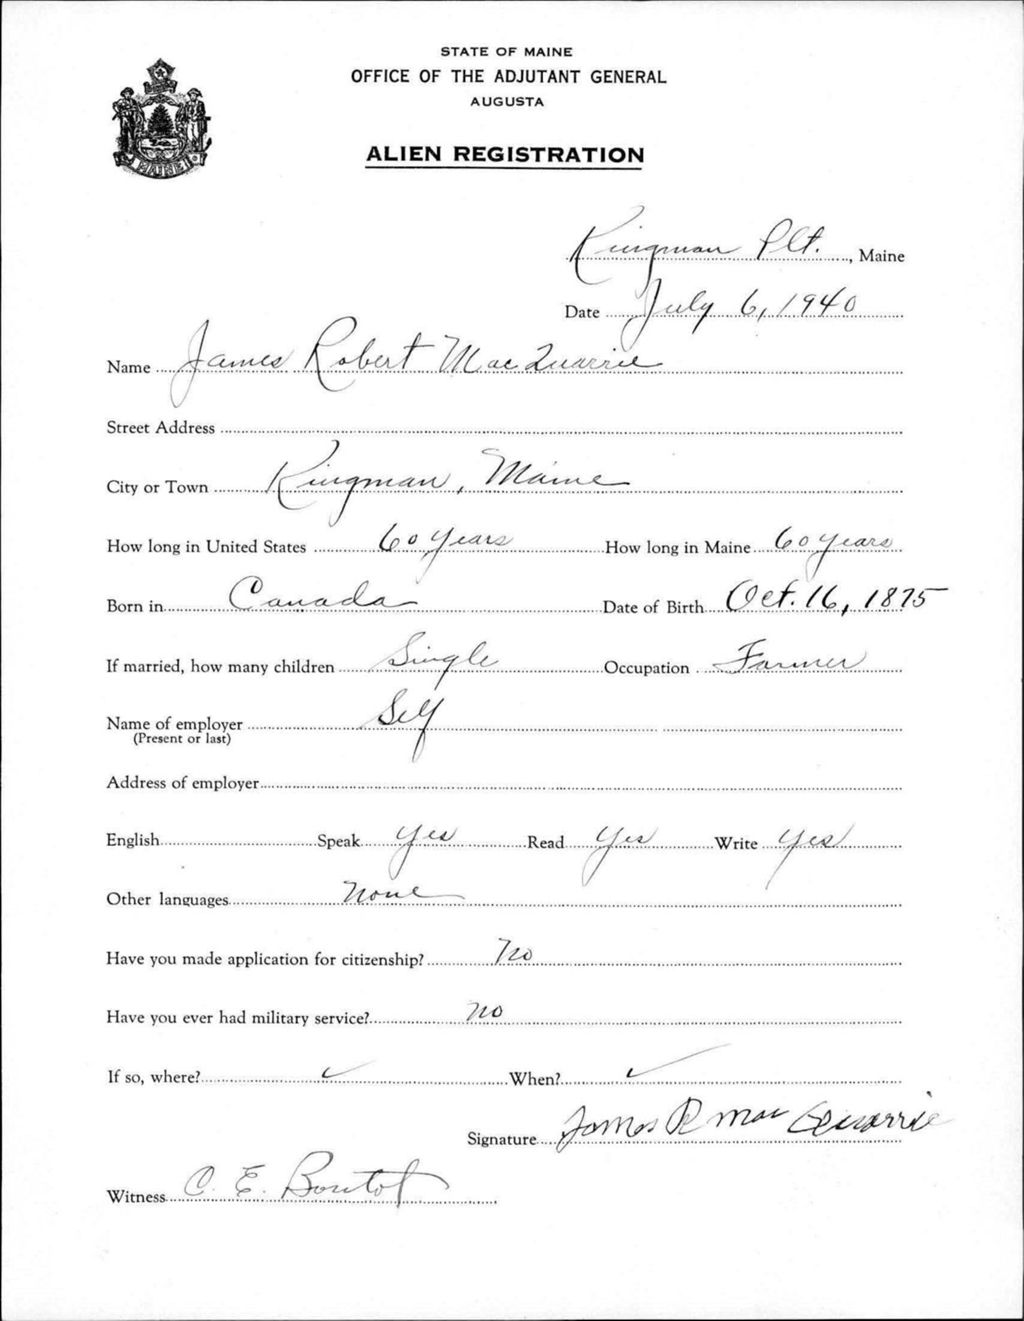 STATE OF MAINE
OFFICE OF THE ADJUTANT GENERAL
AUGUSTA
ALIEN REGISTRATION
Kingman Plt., Maine
Date July 6, 1940
Name James Robert MacQuarrie
Street Address
City or Town Kingman, Maine
How long in United States 60 years How long in Maine 60 years
Born in Canada Date of Birth Oct. 16, 1875
If married, how many children Single Occupation Farmer
Name of employer Self
(Present or last)
Address of employer
English Speak Yes Read Yes Write Yes
Other languages None
Have you made application for citizenship? No
Have you ever had military service? No
If so, where? ✓ When? ✓
Signature James R MacQuarrie
Witness C. E. Boutot
MAINE